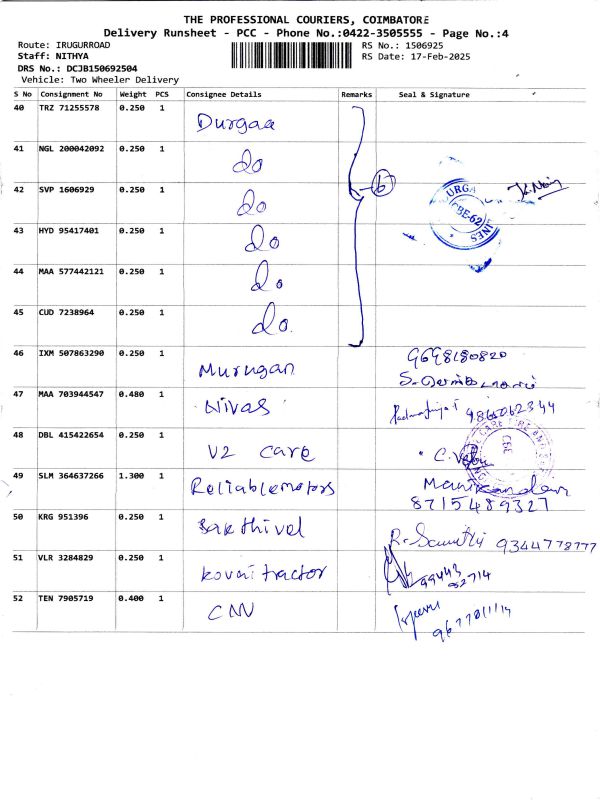 THE PROFESSIONAL COURIERS, COIMBATORE
Delivery Runsheet - PCC - Phone No.:0422-3505555 - Page No.:4
Route: IRUGURROAD RS No.: 1506925
Staff: NITHYA RS Date: 17-Feb-2025
DRS No.: DCJB150692504
Vehicle: Two Wheeler Delivery
S No Consignment No Weight PCS Consignee Details Remarks Seal & Signature
40 TRZ 71255578 0.250 1 Durgaa
41 NGL 200042092 0.250 1 do
42 SVP 1606929 0.250 1 do 6 URGA CBE-62 INES
43 HYD 95417401 0.250 1 do
44 MAA 577442121 0.250 1 do
45 CUD 7238964 0.250 1 do.
46 IXM 507863290 0.250 1 Murugan 9698180820
47 MAA 703944547 0.480 1 Nivas 9866062344
48 DBL 415422654 0.250 1 V2 care CARE CBE
49 SLM 364637266 1.300 1 Reliablemotors Manikandan
8715489327
50 KRG 951396 0.250 1 Sakthivel 9344778777
51 VLR 3284829 0.250 1 kovai tractor 99443
52714
52 TEN 7905719 0.400 1 CNN